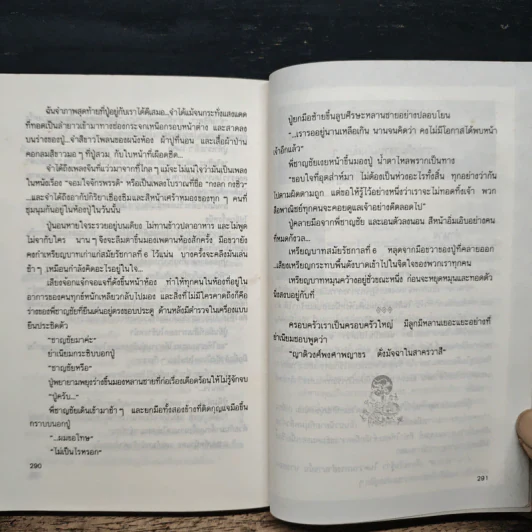 ฉันจำภาพสุดท้ายที่ปู่อยู่กับเราได้ดีเสมอ...จำได้แม้จนกระทั่งแสงแดด
ที่ทอดเป็นลำยาวเข้ามาทางช่องกระจกเหนือกรอบหน้าต่าง และสาดลง
บนร่างของปู่...จำสีขาวโพลนของผนังห้อง ผ้าปูที่นอน และเสื้อผ้าป่าน
คอกลมสีขาวมอ ๆ ที่ปู่สวม กับใบหน้าที่เผือดซีด...
จำได้ถึงเพลงจีนที่แว่วมาจากที่ไกล ๆ แม้จะไม่แน่ใจว่ามันเป็นเพลง
ในหนังเรื่อง "จอมใจจักรพรรดิ์" หรือเป็นเพลงโบราณที่ชื่อ "กงลก กงชิ่ว"
...และจำได้ถึงอากัปกิริยาเชื่องซึมและสีหน้าเศร้าหมองของทุก ๆ คนที่
ชุมนุมกันอยู่ในห้องปู่ในวันนั้น
ปู่นอนหายใจระรวยอยู่บนเตียง ไม่ทานข้าวปลาอาหาร และไม่พูด
ไม่จากับใคร นาน ๆ จึงจะลืมตาขึ้นมองเพดานห้องสักครั้ง มือขวายัง
คงกำเหรียญบาทเก่าแก่สมัยรัชกาลที่ ๕ ไว้แน่น บางครั้งจะคลึงมันเล่น
ช้า ๆ เหมือนกำลังคิดอะไรอยู่ในใจ...
เสียงจ้อกแจ้กจอแจที่ดังขึ้นหน้าห้อง ทำให้ทุกคนในห้องที่อยู่ใน
อาการของคนทุกข์หนักเหลียวกลับไปมอง และสิ่งที่ไม่มีใครคาดถึงก็คือ
ร่างของพี่ชาญชัยที่ยืนเด่นอยู่ตรงขอบประตู ด้านหลังมีตำรวจในเครื่องแบบ
ยืนประชิดตัว
"ชาญชัยมาค่ะ"
ย่าเนียมกระซิบบอกปู่
"ชาญชัยหรือ"
ปู่พยายามพยุงร่างขึ้นมองหลานชายที่ก่อเรื่องเดือดร้อนให้ไม่รู้จักจบ
"ปู่ครับ..."
พี่ชาญชัยเดินเข้ามาช้า ๆ และยกมือทั้งสองข้างที่ติดกุญแจมือขึ้น
กราบบนอกปู่
"...ผมขอโทษ"
"ไม่เป็นไรหรอก"
290
ปู่ยกมือซ้ายขึ้นลูบศีรษะหลานชายอย่างปลอบโยน
"...เรารออยู่นานเหลือเกิน นานจนคิดว่า คงไม่มีโอกาสได้พบหน้า
เจ้าอีกแล้ว"
พี่ชาญชัยเงยหน้าขึ้นมองปู่ น้ำตาไหลพรากเป็นทาง
"ขอบใจที่อุตส่าห์มา ไม่ต้องเป็นห่วงอะไรทั้งสิ้น ทุกอย่างว่ากัน
ไปตามผิดตามถูก แต่ขอให้รู้ไว้อย่างหนึ่งว่าเราจะไม่ทอดทิ้งเจ้า พวก
ลือพาณิชย์ทุกคนจะคอยดูแลเจ้าอย่างดีตลอดไป"
ปู่คลายมือจากพี่ชาญชัย และเอนตัวลงนอน สีหน้าอิ่มเอิบอย่างคน
ที่หมดกังวล...
เหรียญบาทสมัยรัชกาลที่ ๕ หลุดจากมือขวาของปู่ที่คลายออก
...เสียงเหรียญกระทบพื้นดังบาดเข้าไปในจิตใจของพวกเราทุกคน
เหรียญบาทหมุนคว้างอยู่ชั่วขณะหนึ่ง ก่อนจะหยุดหมุนและทอดตัว
นิ่งสงบอยู่กับที่
ครอบครัวเราเป็นครอบครัวใหญ่ มีลูกมีหลานเยอะแยะอย่างที่
ย่าเนียมชอบพูดว่า
"ญาติวงศ์พงศาพญาธร ดั่งมัจฉาในสาครวาสี"
291